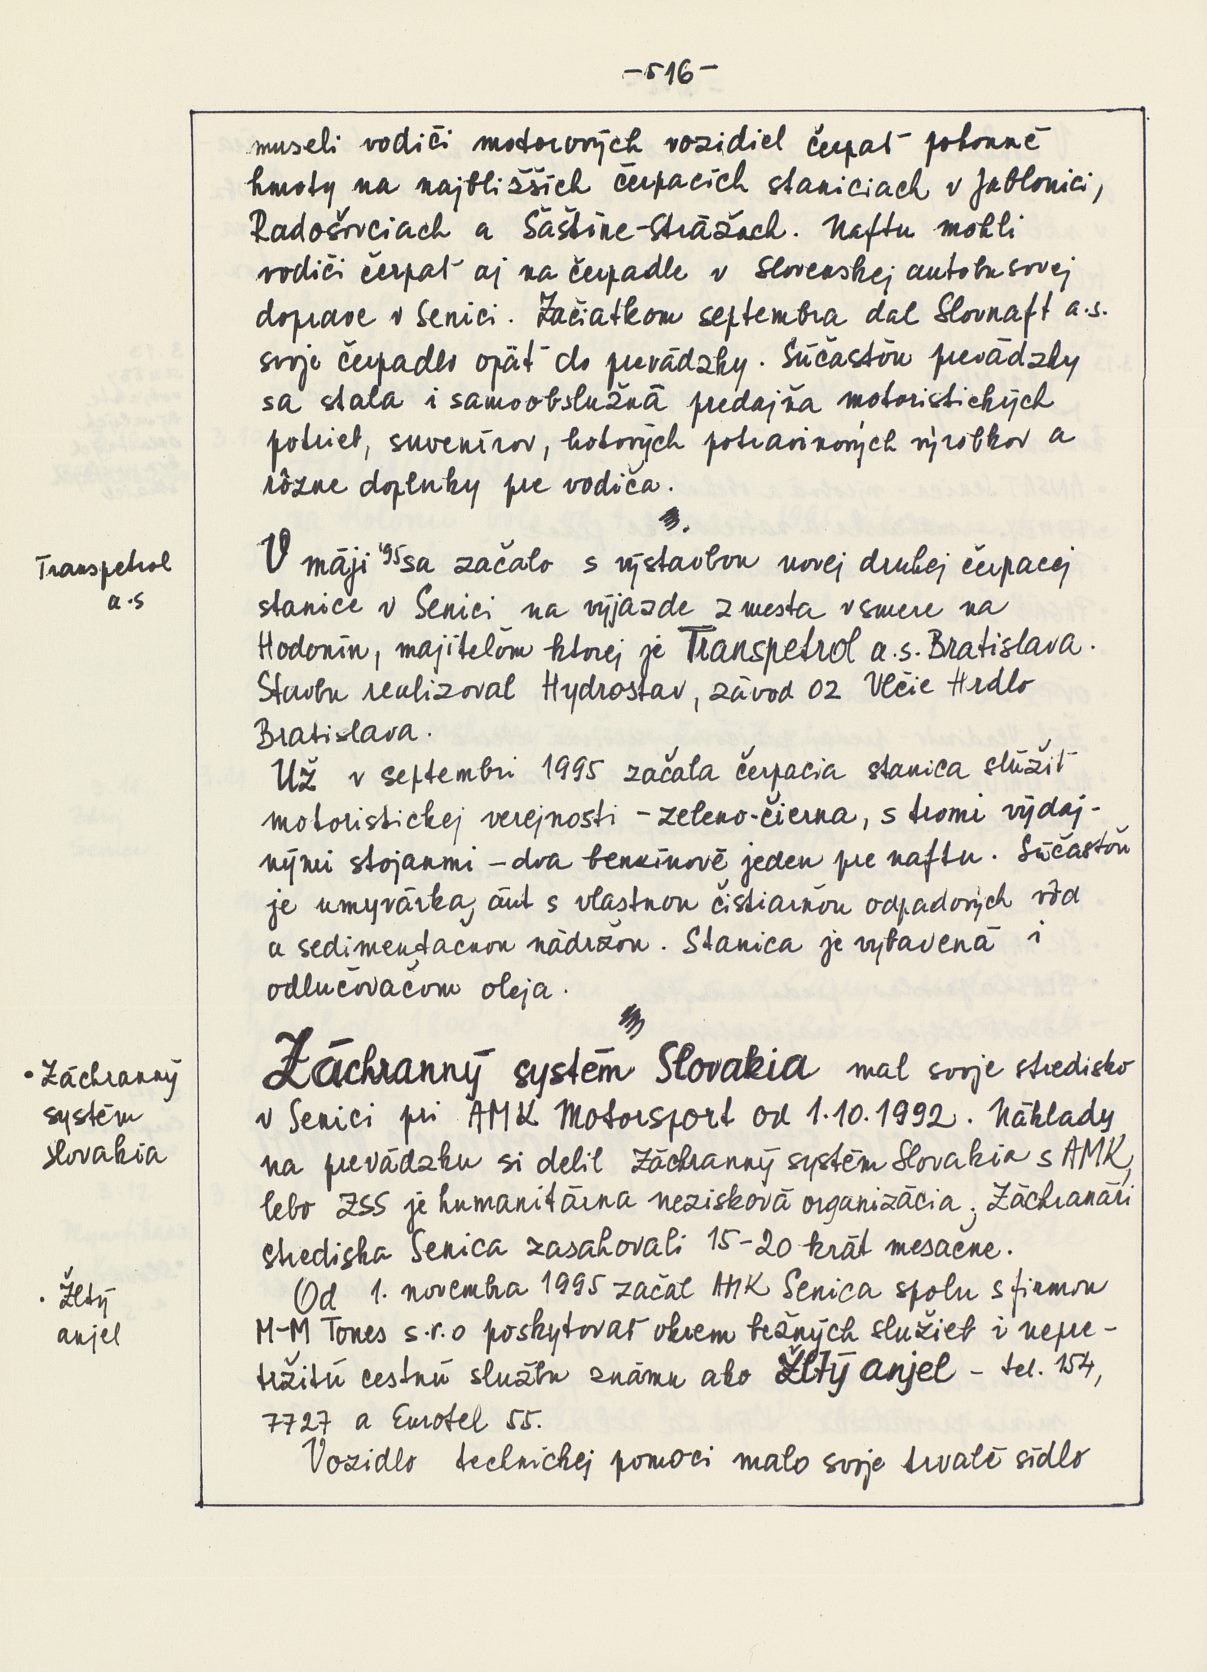 -516-
museli vodiči motorových vozidiel čerpať pohonné
hmoty na najbližších čerpacích staniciach v Jablonici,
Radošovciach a Šaštíne-Strážoch. Naftu mohli
vodiči čerpať aj na čerpadle v Slovenskej autobusovej
doprave v Senici. Začiatkom septembra dal Slovnaft a.s.
svoje čerpadlo opäť do prevádzky. Súčasťou prevádzky
sa stala i samoobslužná predajňa motoristických
potrieb, suvenírov, hotových potravinových výrobkov a
rôzne doplnky pre vodiča.
Transpetrol
a.s
V máji '95 sa začalo s výstavbou novej druhej čerpacej
stanice v Senici na výjazde z mesta v smere na
Hodonín, majiteľom ktorej je Transpetrol a.s. Bratislava.
Stavbu realizoval Hydrostav, závod 02 Vlčie Hrdlo
Bratislava.
Už v septembri 1995 začala čerpacia stanica slúžiť
motoristickej verejnosti - zeleno-čierna, s tromi výdaj-
nými stojanmi - dva benzínové jeden pre naftu. Súčasťou
je umyvárka, áut s vlastnou čistiarňou odpadových vôd
a sedimentačnou nádržou. Stanica je vybavená i
odlučovačom oleja.
• Záchranný
systém
Slovakia
Záchranný systém Slovakia mal svoje stredisko
v Senici pri AMK Motorsport od 1.10.1992. Náklady
na prevádzku si delil Záchranný systém Slovakia s AMK,
lebo ZSS je humanitárna nezisková organizácia. Záchranári
strediska Senica zasahovali 15-20 krát mesačne.
• Žltý
anjel
Od 1. novembra 1995 začal AMK Senica spolu s firmou
M-M Tones s.r.o poskytovať okrem bežných služieb i nepre-
tržitú cestnú službu známu ako Žltý anjel - tel. 154,
7727 a Eurotel 55.
Vozidlo technickej pomoci malo svoje trvalé sídlo